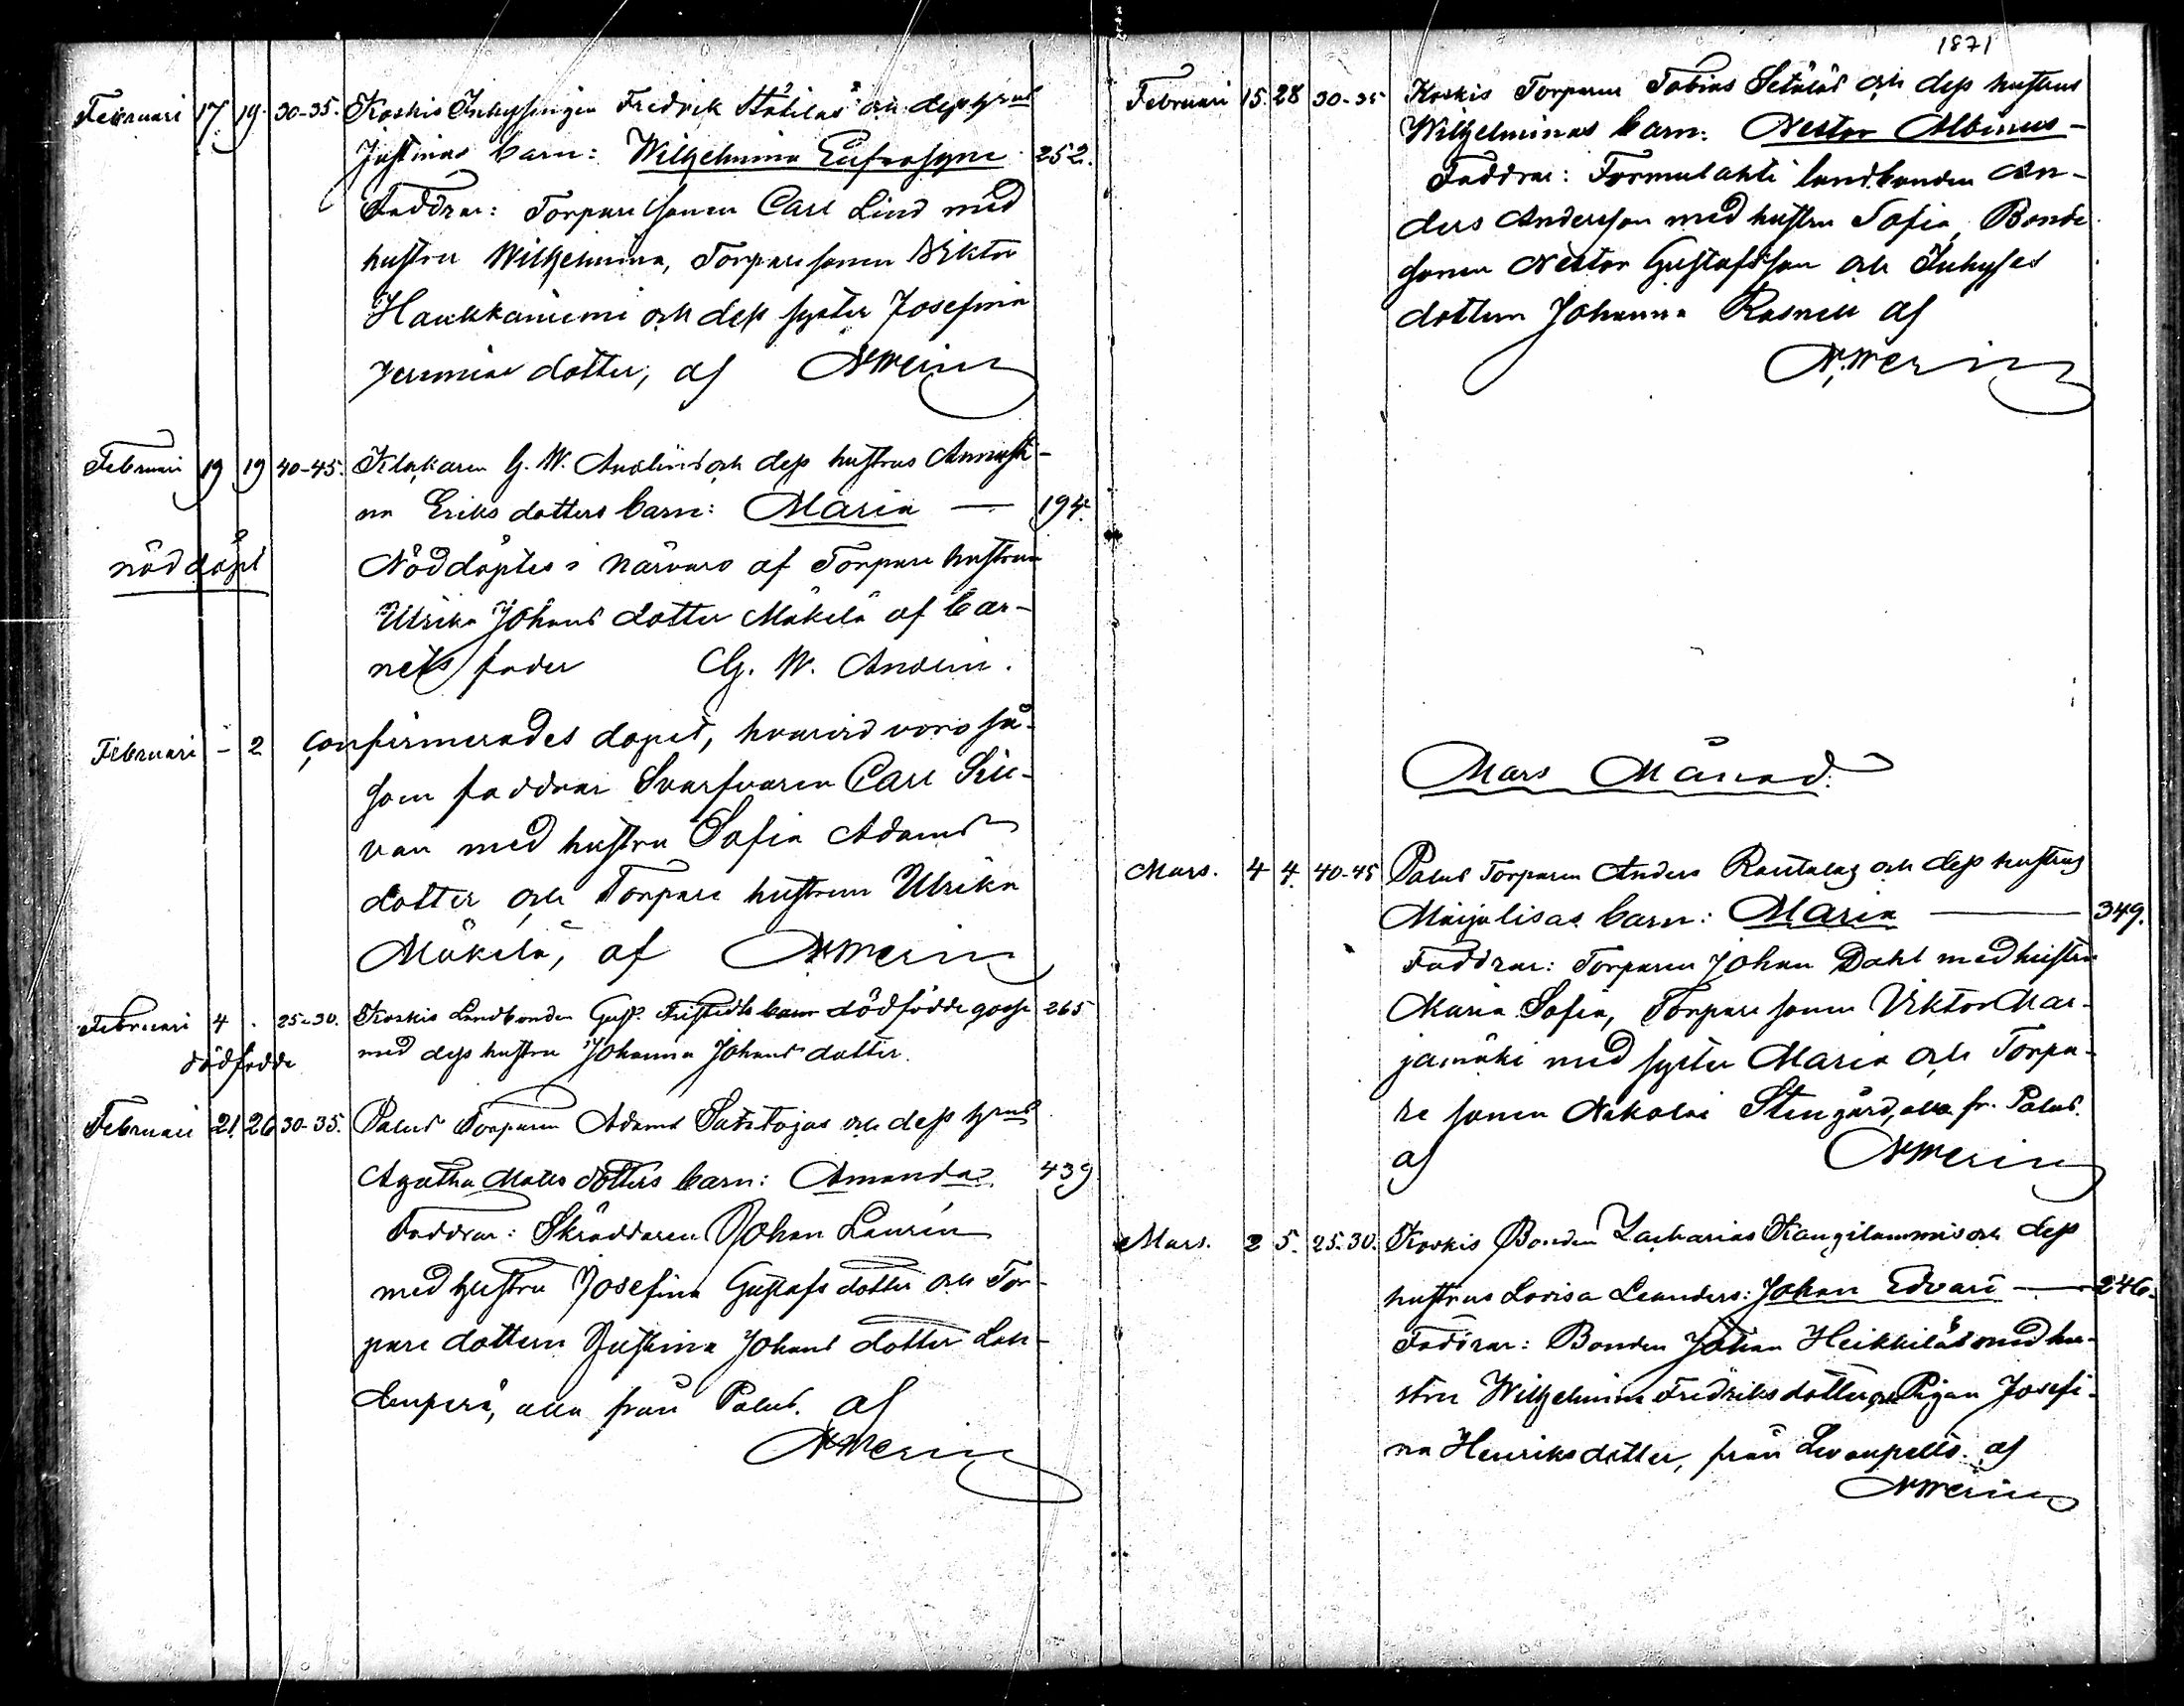 Februari 17. 19. 30-35. Koskis Inhysingen Fredrik Ståhlas och dess hrus
Justinas barn: Wilhelmina Eufrosyne 252.
Faddrar: Torparesonen Carl Lind med
hustru Wilhelmina, Torparesonen Viktor
Haukkaniemi och dess syster Josefina
Jeremiae dotter, af NMerin
Februari 19 19 40-45. Klåkaren G. W. och dess hustrus Annasti-
na Eriks dotters barn: Maria — 194.
nöddöpt
Nöddöptes i närvaro af Torpare hustrun
Ulrika Johans dotter Mäkelä af bar-
nets fader G. W.
Februari - 2 confirmerades dopet, hvarvid voro så-
som faddrar Svarfvaren Carl
van med hustru Sofia Adams
dotter och Torpare hustrun Ulrika
Mäkelä, af NMerin
Februari 4 . 25-30. Koskis Landbonden Gust. barn dödfödde gosse 265
dödfödde
med dess hustru Johanna Johans dotter.
Februari 21. 26 30-35. Palus Torparen Adams och dess hrus
Agatha Matts dotters barn: Amanda 439
Faddrar: Skräddaren Johan Laurén
med hustru Josefina Gustafs dotter och Tor-
pare dottern Justina Johans dotter Lau-
denperä, alla från Palus. af
NMerin
1871
Februari 15. 28 30-35 Koskis Torparen Tobias Setäläs och dess hustrus
Wilhelminas barn: Nestor Albinus -
Faddrar: Formulahti landbonden An-
ders Andersson med hustru Sofia, Bonde
sonen Nestor Gustafsson och Inhyses
dottern Johanna Rosnell af
N. Merin
Mars Månad.
Mars. 4 4. 40-45 Palus Torparen Anders Rautalas och dess hustrus
Maijalisas barn: Maria — 349.
Faddrar: Torparen Johan Dahl med hustru
Maria Sofia, Torpare sonen Viktor Mar-
jamäki med syster Maria och Torpa-
re sonen Nikolai Stengård, alla fr. Palus.
af NMerin
Mars. 2 5. 25-30. Koskis Bonden Zacharias Kangilammis och dess
hustrus Lovisa Leanders: Johan Edvard — 246.
Faddrar: Bonden Johan Heikkiläs med hu-
stru Wilhelmina Fredriks dotter och Pigan Josefi-
na Henriksdotter, från Levanpelto. af
NMerin